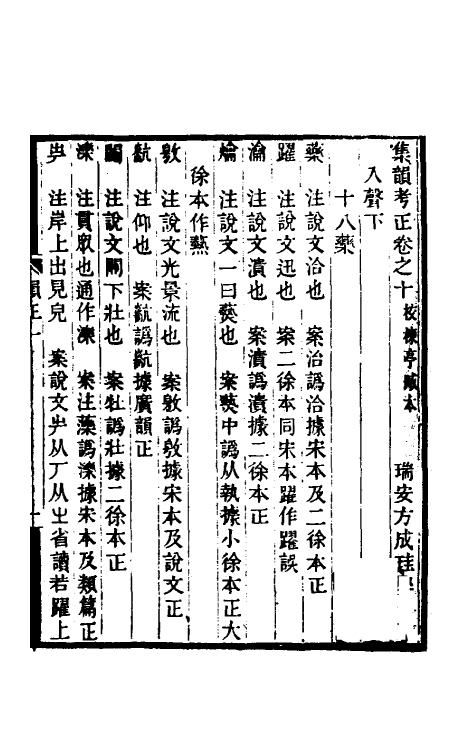 集韻考正卷之十 校楝亭藏本 瑞安方成珪
入聲下
十八藥
藥 注說文治也 案治譌洽據宋本及二徐本正
躍 注說文迅也 案二徐本同宋本躍作躍誤
瀹 注說文漬也 案漬譌瀆據二徐本正
爚 注說文一曰爇也 案爇中譌从執據小徐本正大
徐本作爇
敫 注說文光景流也 案敫譌敫據宋本及說文正
䭹 注仰也 案䭹譌䭹據廣韻正
闟 注說文關下牡也 案牡譌壯據二徐本正
濼 注貫眾也通作濼 案注藻譌濼據宋本及類篇正
屵 注岸上出見皃 案說文屵从丆从屮省讀若躍上